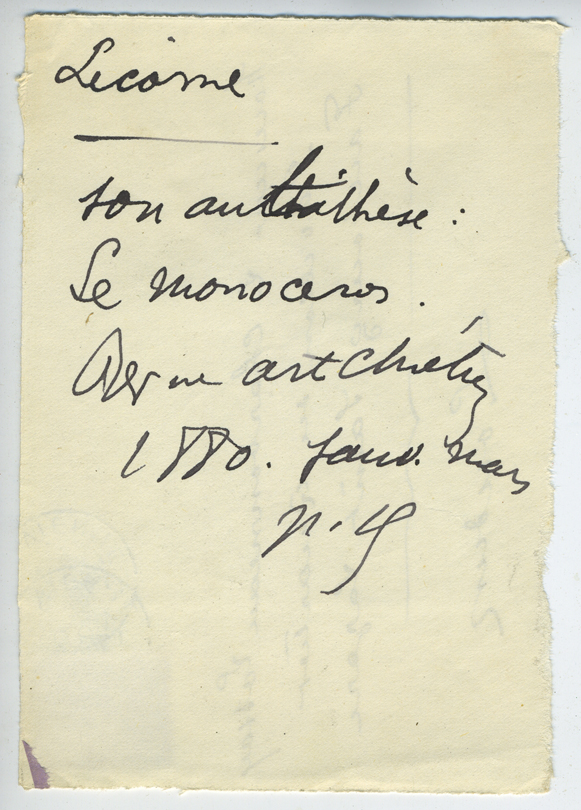 Licorne
son antithèse :
Le monoceros.
Revue art Chrétien
1880. Janv. Mars
p.